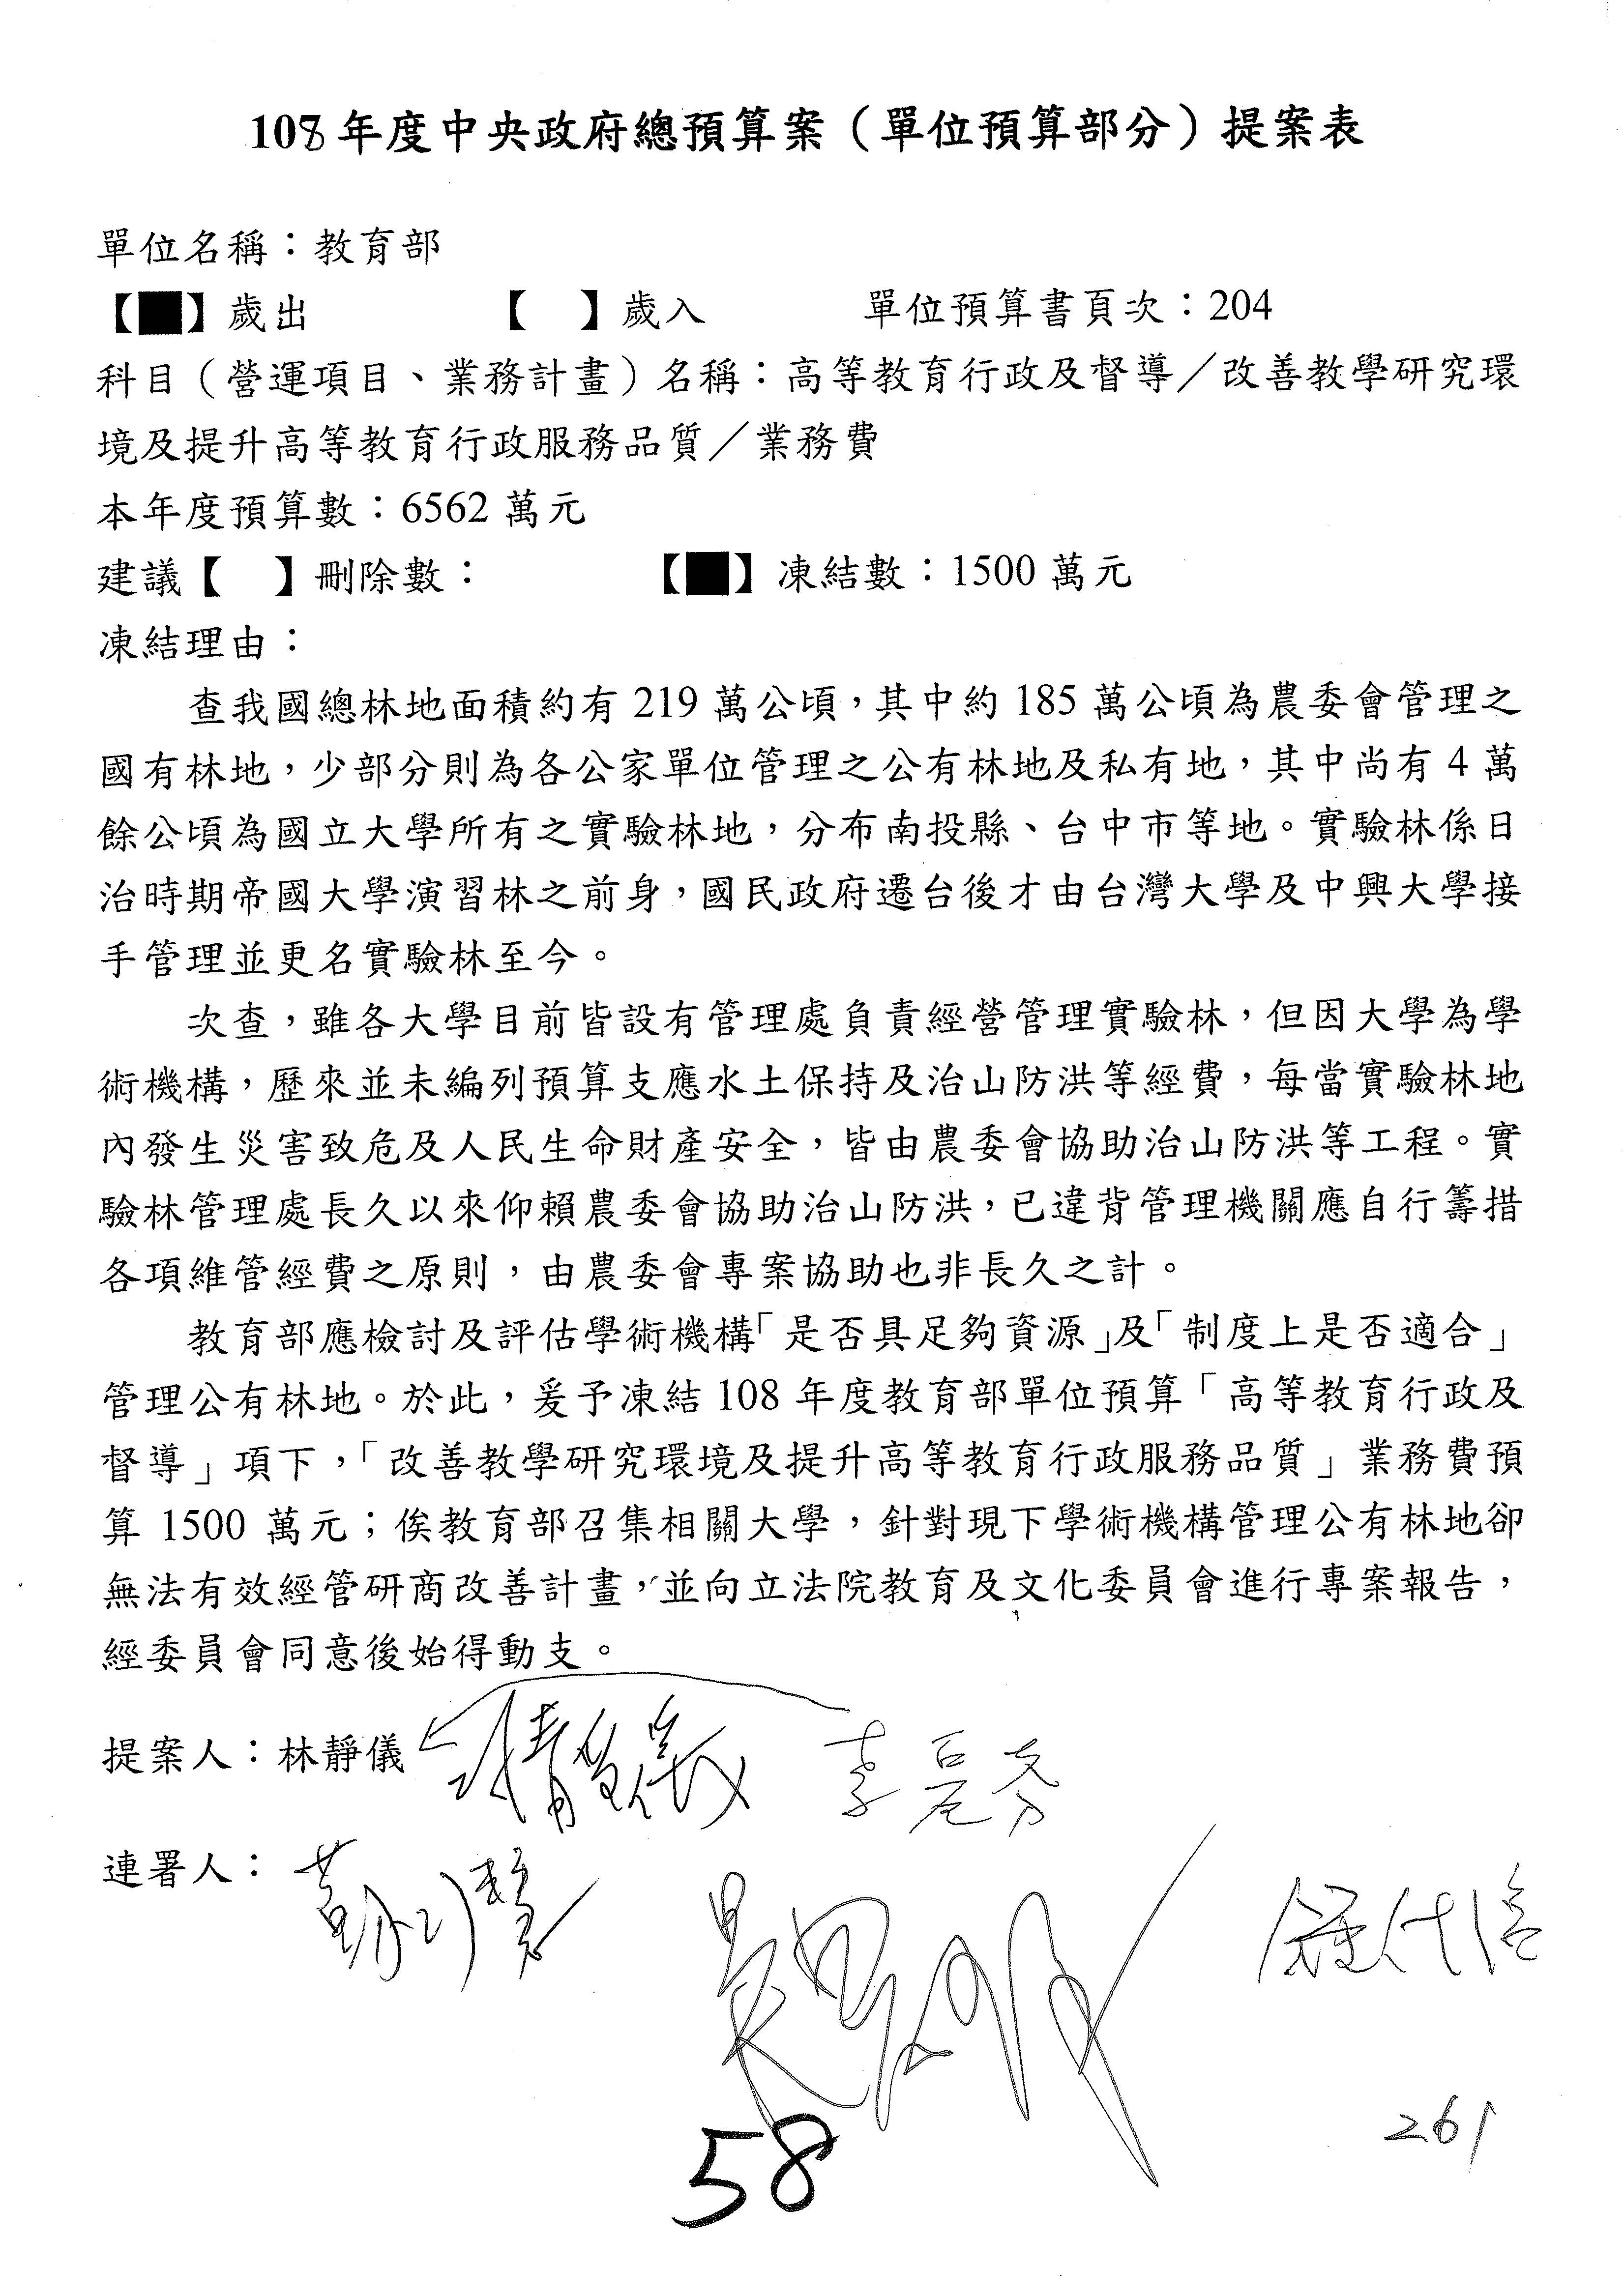 108年度中央政府總預算案（單位預算部分）提案表
單位名稱：教育部
【■】歲出 【 】歲入 單位預算書頁次：204
科目（營運項目、業務計畫）名稱：高等教育行政及督導／改善教學研究環
境及提升高等教育行政服務品質／業務費
本年度預算數：6562 萬元
建議【 】刪除數： 【■】凍結數：1500 萬元
凍結理由：
查我國總林地面積約有 219 萬公頃，其中約 185 萬公頃為農委會管理之
國有林地，少部分則為各公家單位管理之公有林地及私有地，其中尚有 4 萬
餘公頃為國立大學所有之實驗林地，分布南投縣、台中市等地。實驗林係日
治時期帝國大學演習林之前身，國民政府遷台後才由台灣大學及中興大學接
手管理並更名實驗林至今。
次查，雖各大學目前皆設有管理處負責經營管理實驗林，但因大學為學
術機構，歷來並未編列預算支應水土保持及治山防洪等經費，每當實驗林地
內發生災害致危及人民生命財產安全，皆由農委會協助治山防洪等工程。實
驗林管理處長久以來仰賴農委會協助治山防洪，已違背管理機關應自行籌措
各項維管經費之原則，由農委會專案協助也非長久之計。
教育部應檢討及評估學術機構「是否具足夠資源」及「制度上是否適合」
管理公有林地。於此，爰予凍結 108 年度教育部單位預算「高等教育行政及
督導」項下，「改善教學研究環境及提升高等教育行政服務品質」業務費預
算 1500 萬元；俟教育部召集相關大學，針對現下學術機構管理公有林地卻
無法有效經管研商改善計畫，並向立法院教育及文化委員會進行專案報告，
經委員會同意後始得動支。
提案人：林靜儀 林靜儀 李昆澤
連署人：
58
261